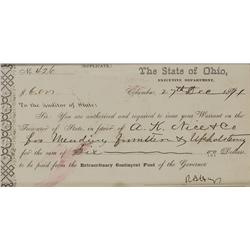 (DUPLICATE.)
No. 426
The State of Ohio,
EXECUTIVE DEPARTMENT.
$ 6.00
Columbus 27th Dec 1871
To the Auditor of State:
Sir: You are authorized and required to issue your Warrant on the
Treasurer of State, in favor of A. K. Nice & Co
for Mending furniture & Upholstery
for the sum of Six Dollars,
to be paid from the Extraordinary Contingent Fund of the Governor
R B Hayes